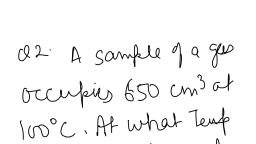 Q2. A sample of a gas
occupies 650 cm³ at
100°C. At what Temp